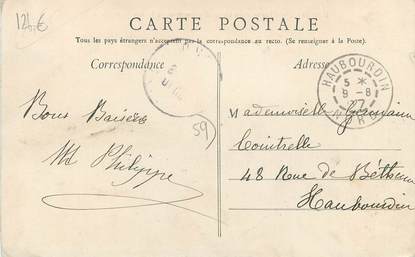 12.€
CARTE POSTALE
Tous les pays étrangers n'acceptent pas la correspondance au recto. (Se renseigner à la Poste).
Correspondance
Adresse
HAUBOURDIN
5 *
9 - 8
NORD
59
Bons Baisers
Philippe
Mademoiselle Germaine
Cointrelle
48 Rue de Béthune
Haubourdin